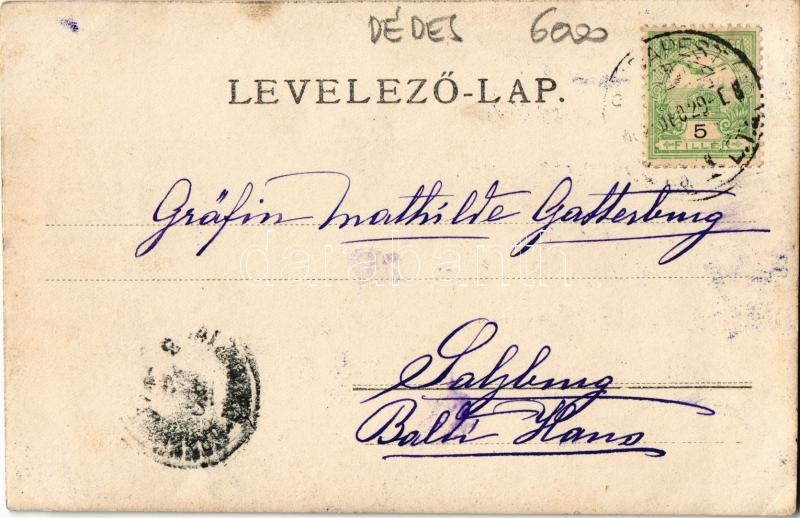 DÉDES 6000
LEVELEZŐ-LAP.
DEC 29
5
FILLÉR
Gräfin Mathilde Gatterburg
darabanth
Salzburg
Baldi Haus